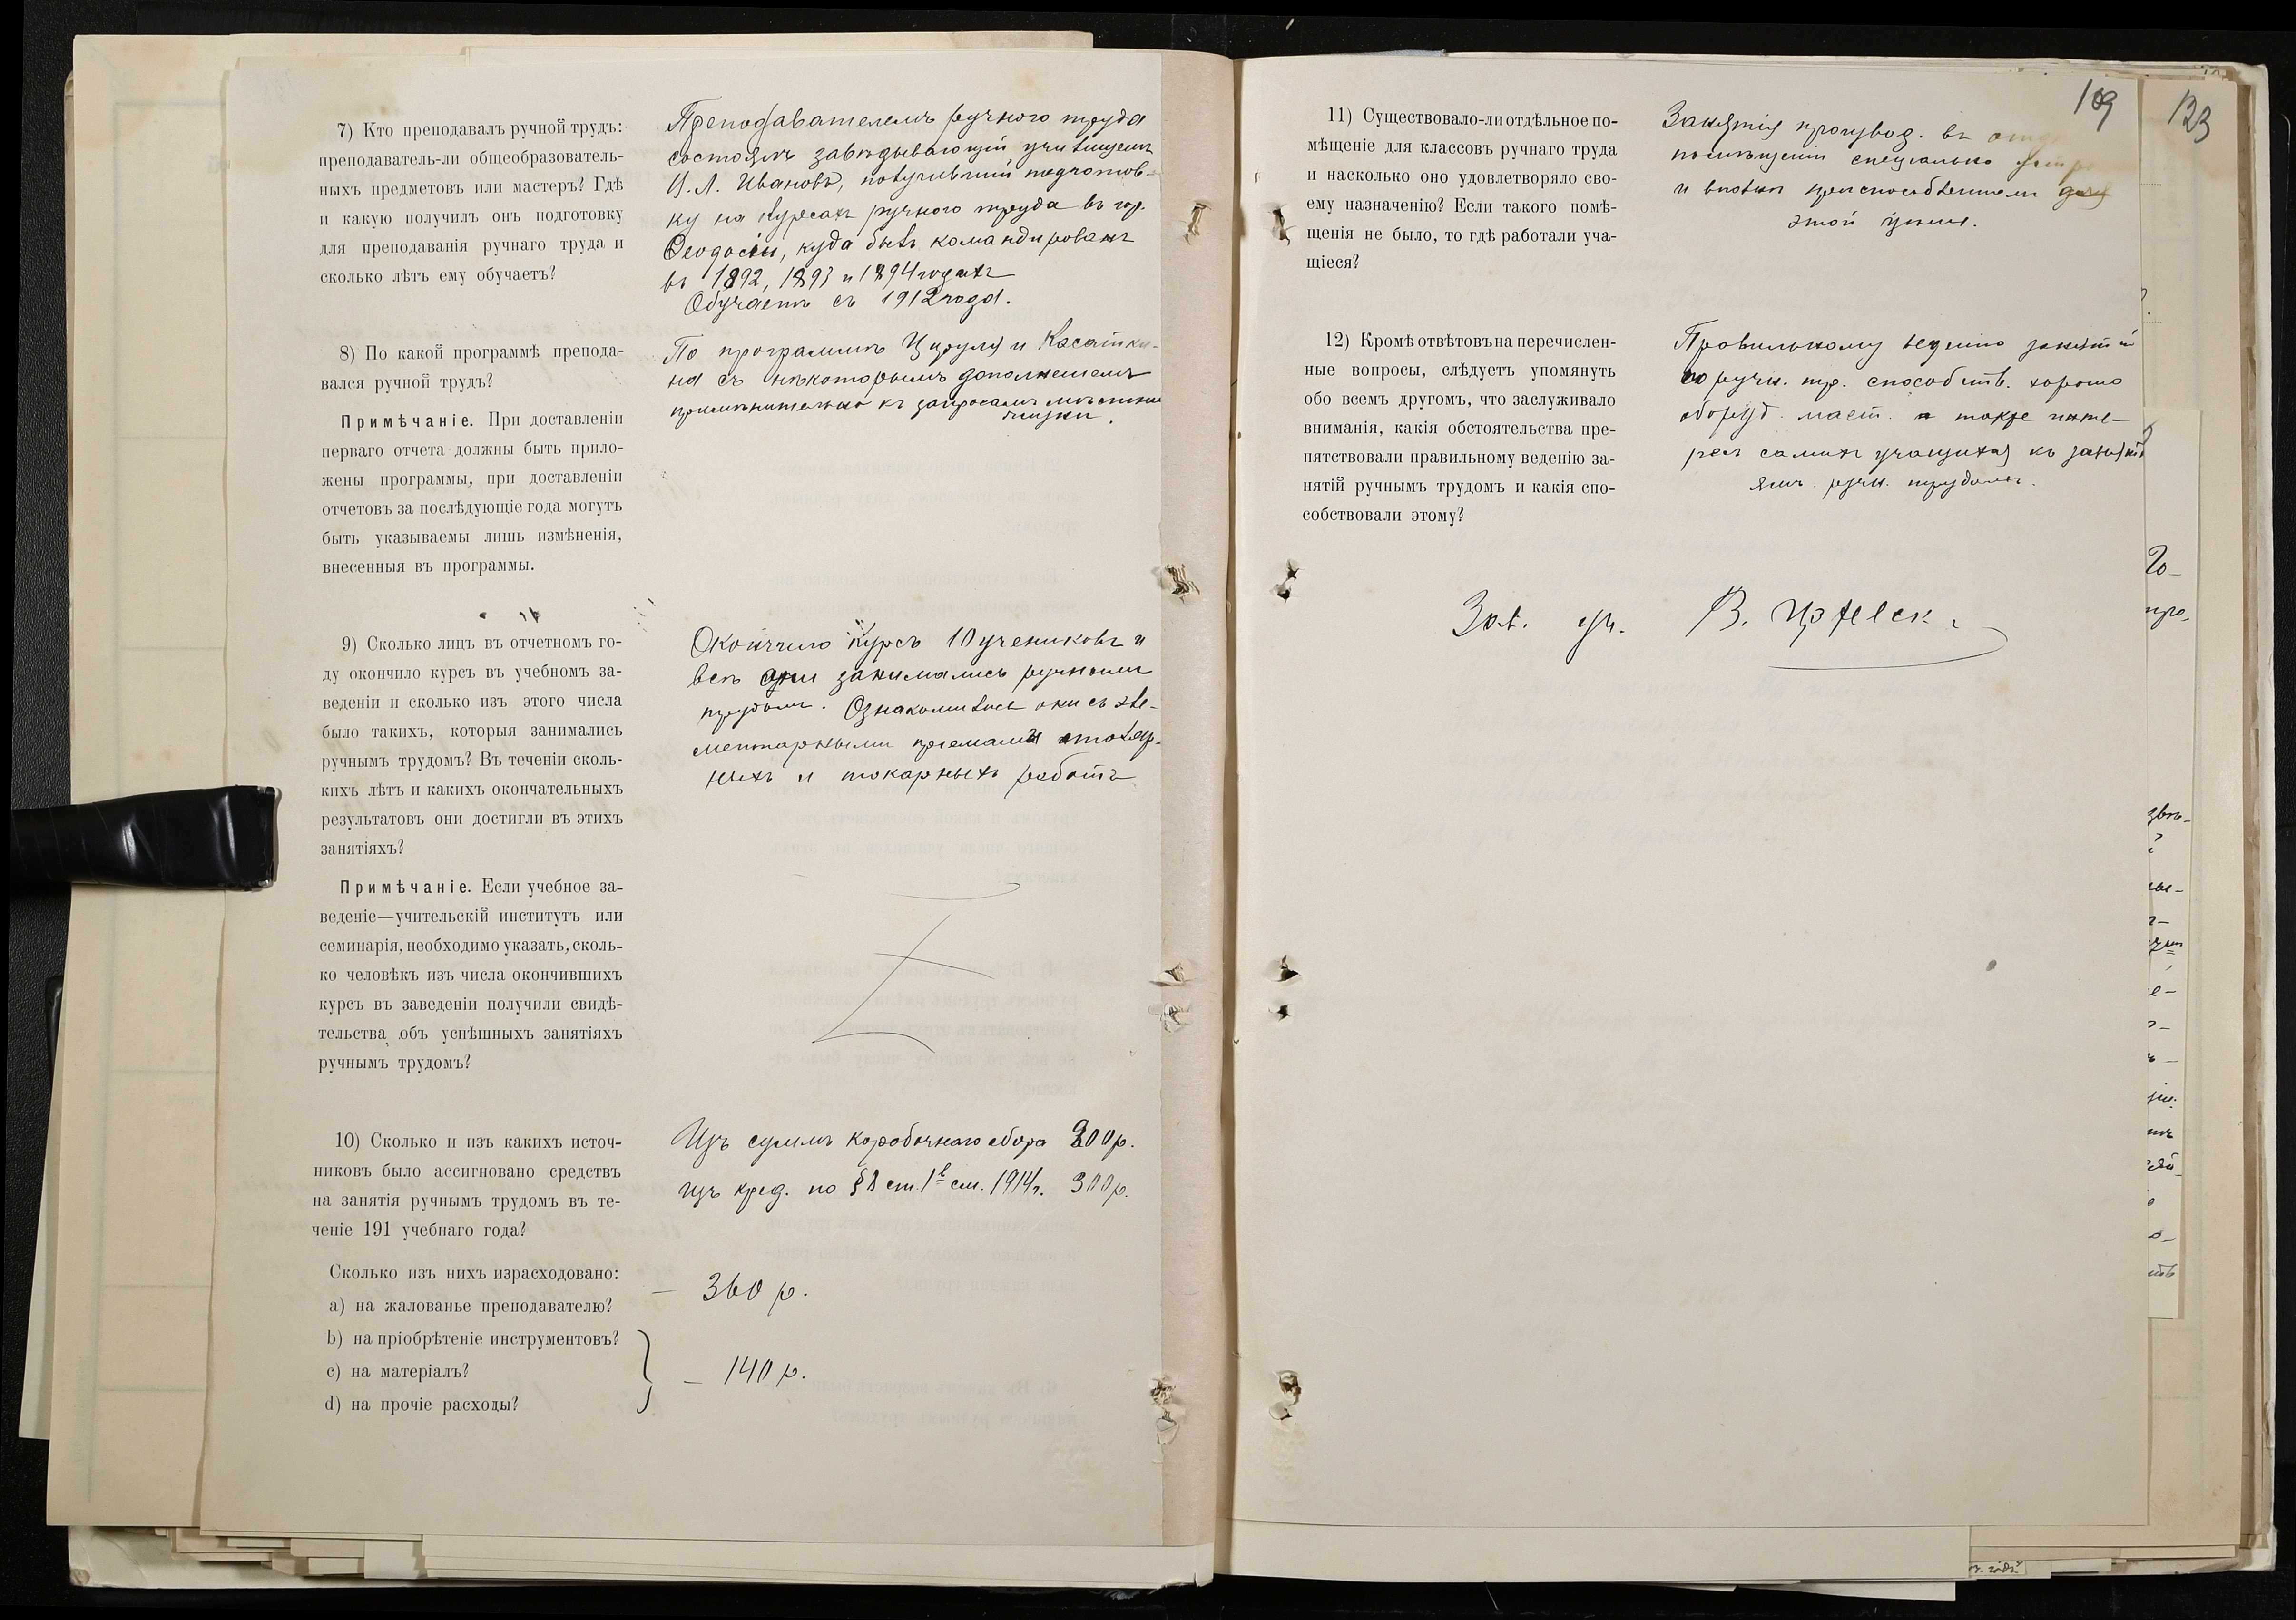 7) Кто преподавалъ ручной трудъ:
преподаватель-ли общеобразователь-
ныхъ предметовъ или мастеръ? Гдѣ
и какую получилъ онъ подготовку
для преподаванія ручнаго труда и
сколько лѣтъ ему обучаетъ?
Преподавателемъ ручного труда
состоялъ завѣдывающій училищемъ
Иванова, получившій подготов-
ку на курсахъ ручного труда въ гор.
Ѳеодосіи, куда былъ командированъ
въ 1892, 1893 и 1894 годахъ
Обучаетъ съ 1912 года.
8) По какой программѣ препода-
вался ручной трудъ?
Примѣчаніе. При доставленіи
перваго отчета должны быть прило-
жены программы, при доставленіи
отчетовъ за послѣдующіе года могутъ
быть указываемы лишь измѣненія,
внесенныя въ программы.
По программѣ Цируля и Касатки-
на съ нѣкоторымъ дополненіемъ
примѣнительно къ запросамъ мѣстной
жизни.
9) Сколько лицъ въ отчетномъ го-
ду окончило курсъ въ учебномъ за-
веденіи и сколько изъ этого числа
было такихъ, которыя занимались
ручнымъ трудомъ? Въ теченіи сколь-
кихъ лѣтъ и какихъ окончательныхъ
результатовъ они достигли въ этихъ
занятіяхъ?
Примѣчаніе. Если учебное за-
веденіе—учительскій институтъ или
семинарія, необходимо указать, сколь-
ко человѣкъ изъ числа окончившихъ
курсъ въ заведеніи получили свидѣ-
тельства объ успѣшныхъ занятіяхъ
ручнымъ трудомъ?
Окончило курсъ 10 учениковъ и
всѣ они занимались ручнымъ
трудомъ. Ознакомились они съ эле-
ментарными пріемами столяр-
ныхъ и токарныхъ работъ
10) Сколько и изъ какихъ источ-
никовъ было ассигновано средствъ
на занятія ручнымъ трудомъ въ те-
ченіе 191 учебнаго года?
Изъ суммъ коробочнаго сбора 200 р.
изъ кред. по § 8 ст. 1 см. 1914 г. 300 р.
Сколько изъ нихъ израсходовано:
а) на жалованье преподавателю?
— 360 р.
b) на пріобрѣтеніе инструментовъ?
c) на матеріалъ?
d) на прочіе расходы?
— 140 р.
109
123
11) Существовало-ли отдѣльное по-
мѣщеніе для классовъ ручнаго труда
и насколько оно удовлетворяло сво-
ему назначенію? Если такого помѣ-
щенія не было, то гдѣ работали уча-
щіеся?
Занятія производ. въ
помѣщеніи спеціально
и вполнѣ приспособленномъ для
этой цѣли.
12) Кромѣ отвѣтовъ на перечислен-
ные вопросы, слѣдуетъ упомянуть
обо всемъ другомъ, что заслуживало
вниманія, какія обстоятельства пре-
пятствовали правильному веденію за-
нятій ручнымъ трудомъ и какія спо-
собствовали этому?
Правильному веденію занятій
по ручн. тр. способств. хорошо
оборуд. маст. а также инте-
ресъ самихъ учащихся къ заняті-
ямъ ручн. трудомъ.
Зав. уч. В.